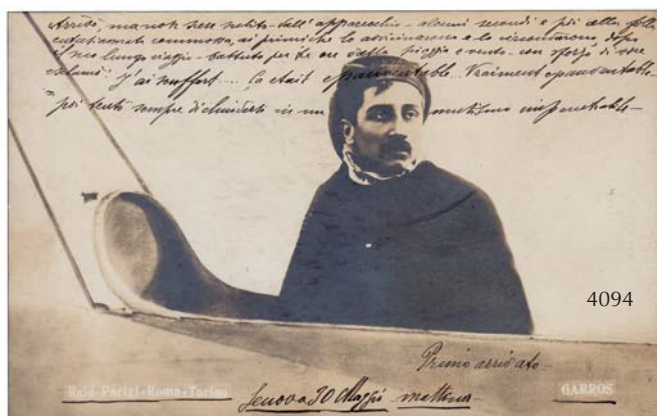 Arrivò, ma non subito dall'apparecchio - alcuni secondi e poi alla folla
commossa, ai primi che lo avvicinarono e lo circondarono dopo
il suo lungo viaggio - battuto per tre ore dalla pioggia e vento - con sforzo di voce
esclamò: J'ai souffert... Ca etait epouvantable.. Vraiment epouvantable
poi tentò sempre di chiudersi in un mutismo impenetrabile -
4094
Primo arrivato
Raid-Parigi-Roma-Torino
GARROS
Genova 30 Maggio mattina